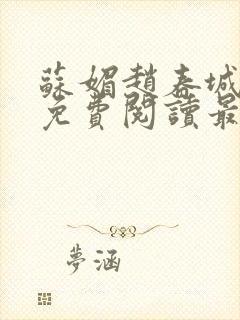 蘇媚趙春城
免費閱讀最
夢涵